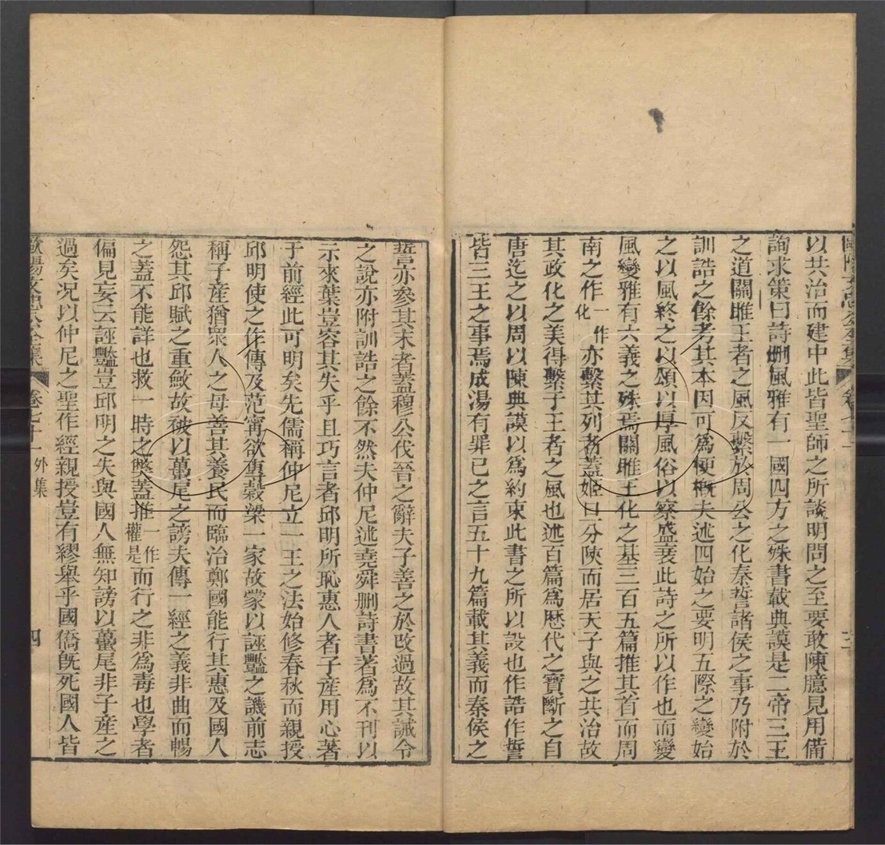 以共治而建中此皆聖師之所談明問之至要敢陳臆見用備
詢求策曰詩刪風雅有一國四方之殊書載典謨是二帝三王
之道關雎王者之風反繫於周公之化秦誓諸侯之事乃附於
訓誥之餘考其本因可為梗概夫述四始之要明五際之變始
之以風終之以頌以厚風俗以察盛衰此詩之所以作也而變
風變雅有六義之殊焉關雎王化之基三百五篇推其首而周
南之作一作化亦繫其列者蓋姬公分陝而居天子與之共治故
其政化之美得繫于王者之風也述百篇為歷代之寶斷之自
唐迄之以周以陳典謨以為約束此書之所以設也作誥作誓
皆三王之事焉成湯有罪已之言五十九篇載其義而秦侯之
誓亦參其末者蓋穆公伐晉之辭夫子善之於改過故其誡令
之說亦附訓誥之餘不然夫仲尼述堯舜刪詩書著為不刊以
示來葉豈容其失乎且巧言者邱明所恥惠人者子產用心著
于前經此可明矣先儒稱仲尼立一王之法始修春秋而親授
邱明使之作傳及范甯欲專穀梁一家故蒙以誣豔之譏前志
稱子產猶眾人之母善其養民而臨治鄭國能行其惠及國人
怨其邱賦之重斂故被以蠆尾之謗夫傳一經之義非曲而暢
之蓋不能詳也救一時之弊蓋推一作權是而行之非為毒也學者
偏見妄云誣豔豈邱明之失與國人無知謗以蠆尾非子產之
過矣況以仲尼之聖作經親授豈有繆舉乎國僑既死國人皆
歐陽文忠公全集 卷七十一 外集 四